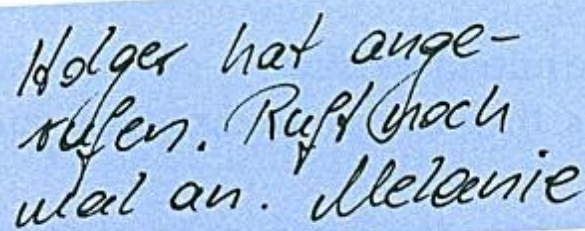 Holger hat ange-
rufen. Ruft noch
mal an. Melanie